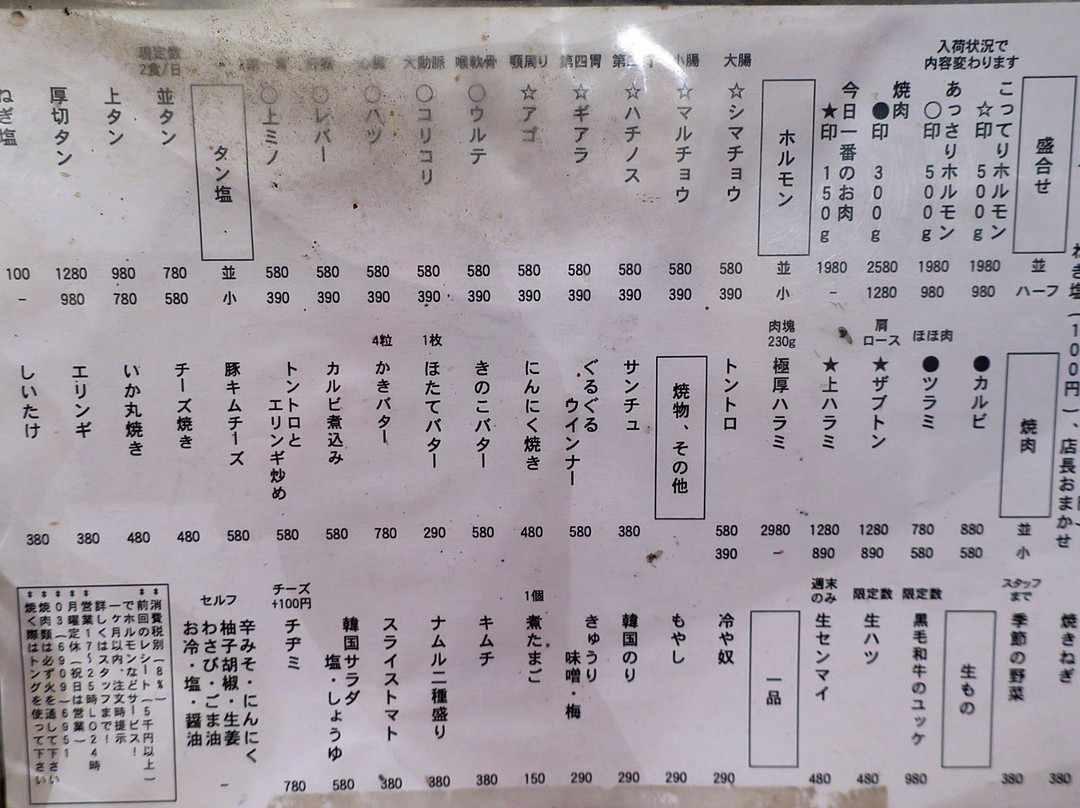 ねぎ塩(100円)、店長おまかせ
入荷状況で
内容変わります
盛合せ
並
ハーフ
こってりホルモン
☆印 500g
1980
980
あっさりホルモン
○印 500g
1980
980
焼肉
●印 300g
2580
1280
今日一番のお肉
★印 150g
1980
-
ホルモン
並
小
大腸
☆シマチョウ
580
390
小腸
☆マルチョウ
580
390
☆ハチノス
580
390
第四胃
☆ギアラ
580
390
顎周り
☆アゴ
580
390
喉軟骨
○ウルテ
580
390
大動脈
○コリコリ
580
390
心臓
○ハツ
580
390
○レバー
580
390
○上ミノ
580
390
タン塩
並
小
限定数
2食/日
並タン
780
580
上タン
980
780
厚切タン
1280
980
ねぎ塩
100
-
焼肉
並
小
●カルビ
880
580
ほほ肉
●ツラミ
780
580
肩
ロース
★ザブトン
1280
890
★上ハラミ
1280
890
肉塊
230g
極厚ハラミ
2980
-
トントロ
580
390
焼物、その他
サンチュ
380
ぐるぐる
ウインナー
580
にんにく焼き
480
きのこバター
580
1枚
ほたてバター
290
4粒
かきバター
780
カルビ煮込み
580
トントロと
エリンギ炒め
580
豚キムチーズ
580
チーズ焼き
480
いか丸焼き
480
エリンギ
380
しいたけ
380
焼きねぎ
380
スタッフ
まで
季節の野菜
380
生もの
限定数
黒毛和牛のユッケ
980
限定数
生ハツ
480
週末
のみ
生センマイ
480
一品
冷や奴
290
もやし
290
韓国のり
290
きゅうり
味噌・梅
290
1個
煮たまご
150
キムチ
380
ナムル二種盛り
380
スライストマト
380
韓国サラダ
塩・しょうゆ
580
チーズ
+100円
チヂミ
780
セルフ
辛みそ・にんにく
柚子胡椒・生姜
わさび・ごま油
お冷・塩・醤油
-
*消費税別(8%)
*前回のレシート(5千円以上)
でホルモンなどサービス!
一ケ月以内、注文時提示
詳しくはスタッフまで!
*営業17~25時LO24時
*月曜定休(祝日は営業)
*03(6909)6951
*焼肉類は必ず火を通して下さい
*焼く際はトングを使って下さい